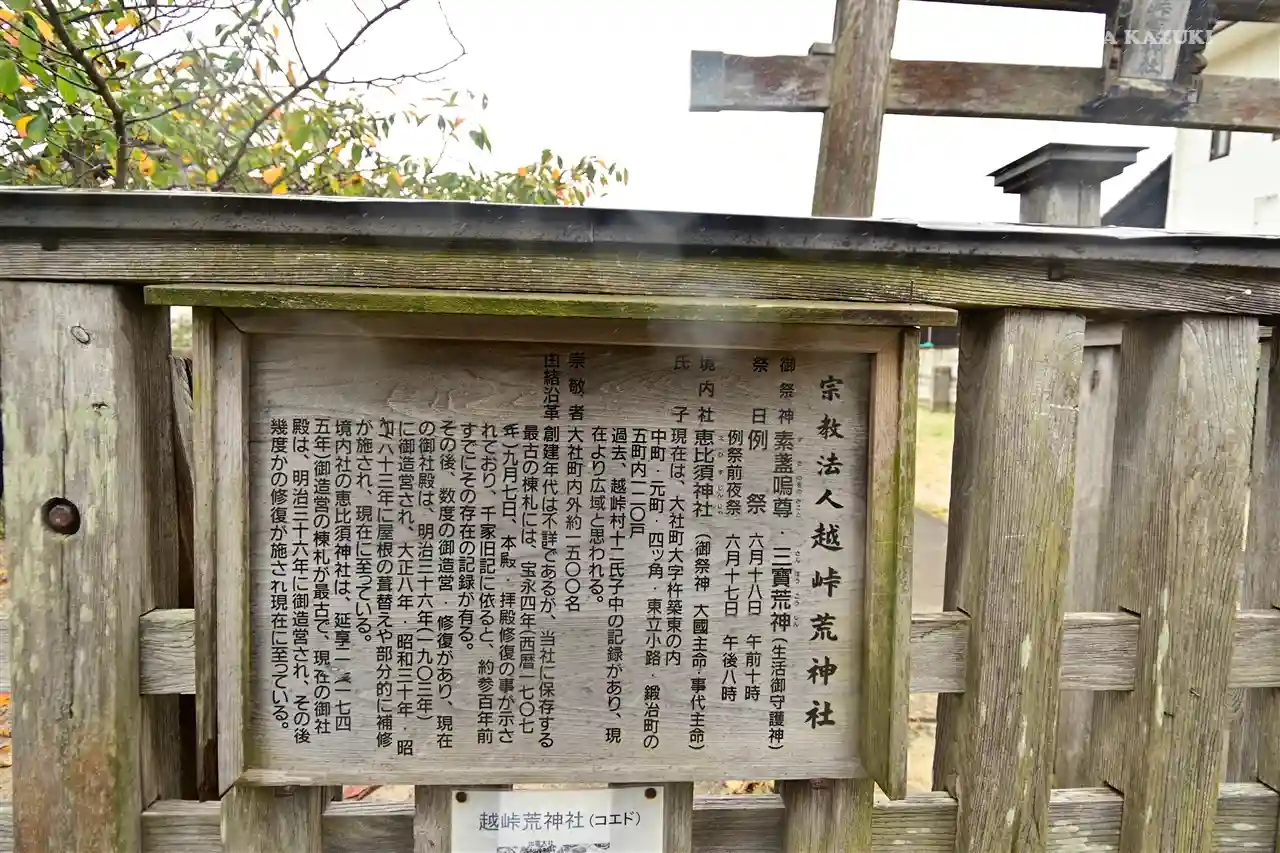 宗教法人越峠荒神社
御祭神 素盞嗚尊・三寳荒神(生活御守護神)
すさのをのみこと さんぽうこうじん
祭日 例祭 六月十八日 午前十時
例祭前夜祭 六月十七日 午後八時
境内社 恵比須神社(御祭神 大國主命・事代主命)
えびすじんじゃ
氏子 現在は、大社町大字杵築東の内
中町・元町・四ッ角・東立小路・鍛冶町の
五町内一二〇戸
過去、越峠村十二氏子中の記録があり、現
在より広域と思われる。
崇敬者 大社町内外約一五〇〇名
由緒沿革 創建年代は不詳であるが、当社に保存する
最古の棟札には、宝永四年(西暦一七〇七
年)九月七日、本殿・拝殿修復の事が示さ
れており、千家旧記に依ると、約参百年前
すでにその存在の記録が有る。
その後、数度の御造営・修復があり、現在
の御社殿は、明治三十六年(一九〇三年)
に御造営され、大正八年・昭和三十年・昭
和六十三年に屋根の葺替えや部分的に補修
が施され、現在に至っている。
境内社の恵比須神社は、延享二 一七四
五年)御造営の棟札が最古で、現在の御社
殿は、明治三十六年に御造営され、その後
幾度かの修復が施され現在に至っている。
越峠荒神社(コエド)
KAZUKI